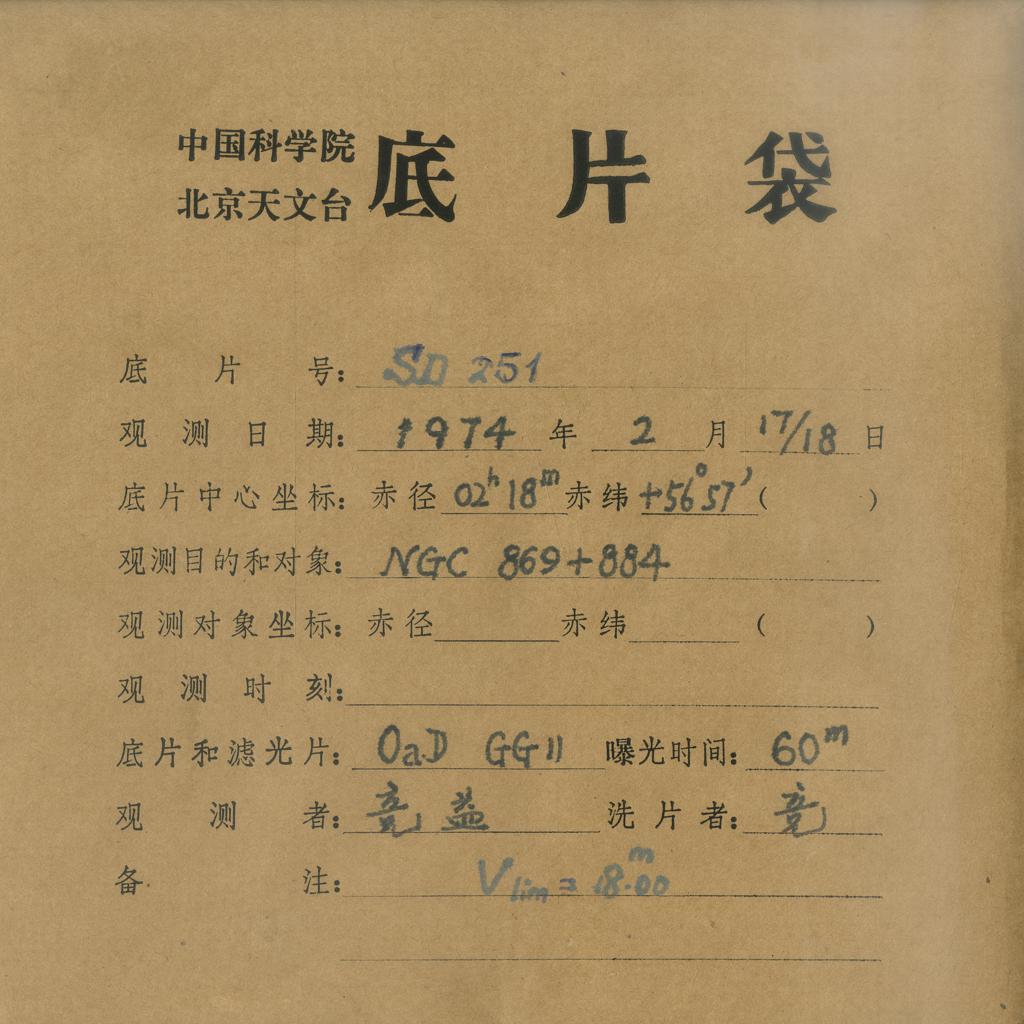 中国科学院
北京天文台
底片袋
底片号：SD 251
观测日期：1974年2月17/18日
底片中心坐标：赤径 02ʰ18ᵐ 赤纬 +56°57′（ ）
观测目的和对象：NGC 869+884
观测对象坐标：赤径 赤纬 （ ）
观测时刻：
底片和滤光片：OaD GG11 曝光时间：60ᵐ
观测者：竞 益 洗片者：竞
备注：Vlim = 18ᵐ.00